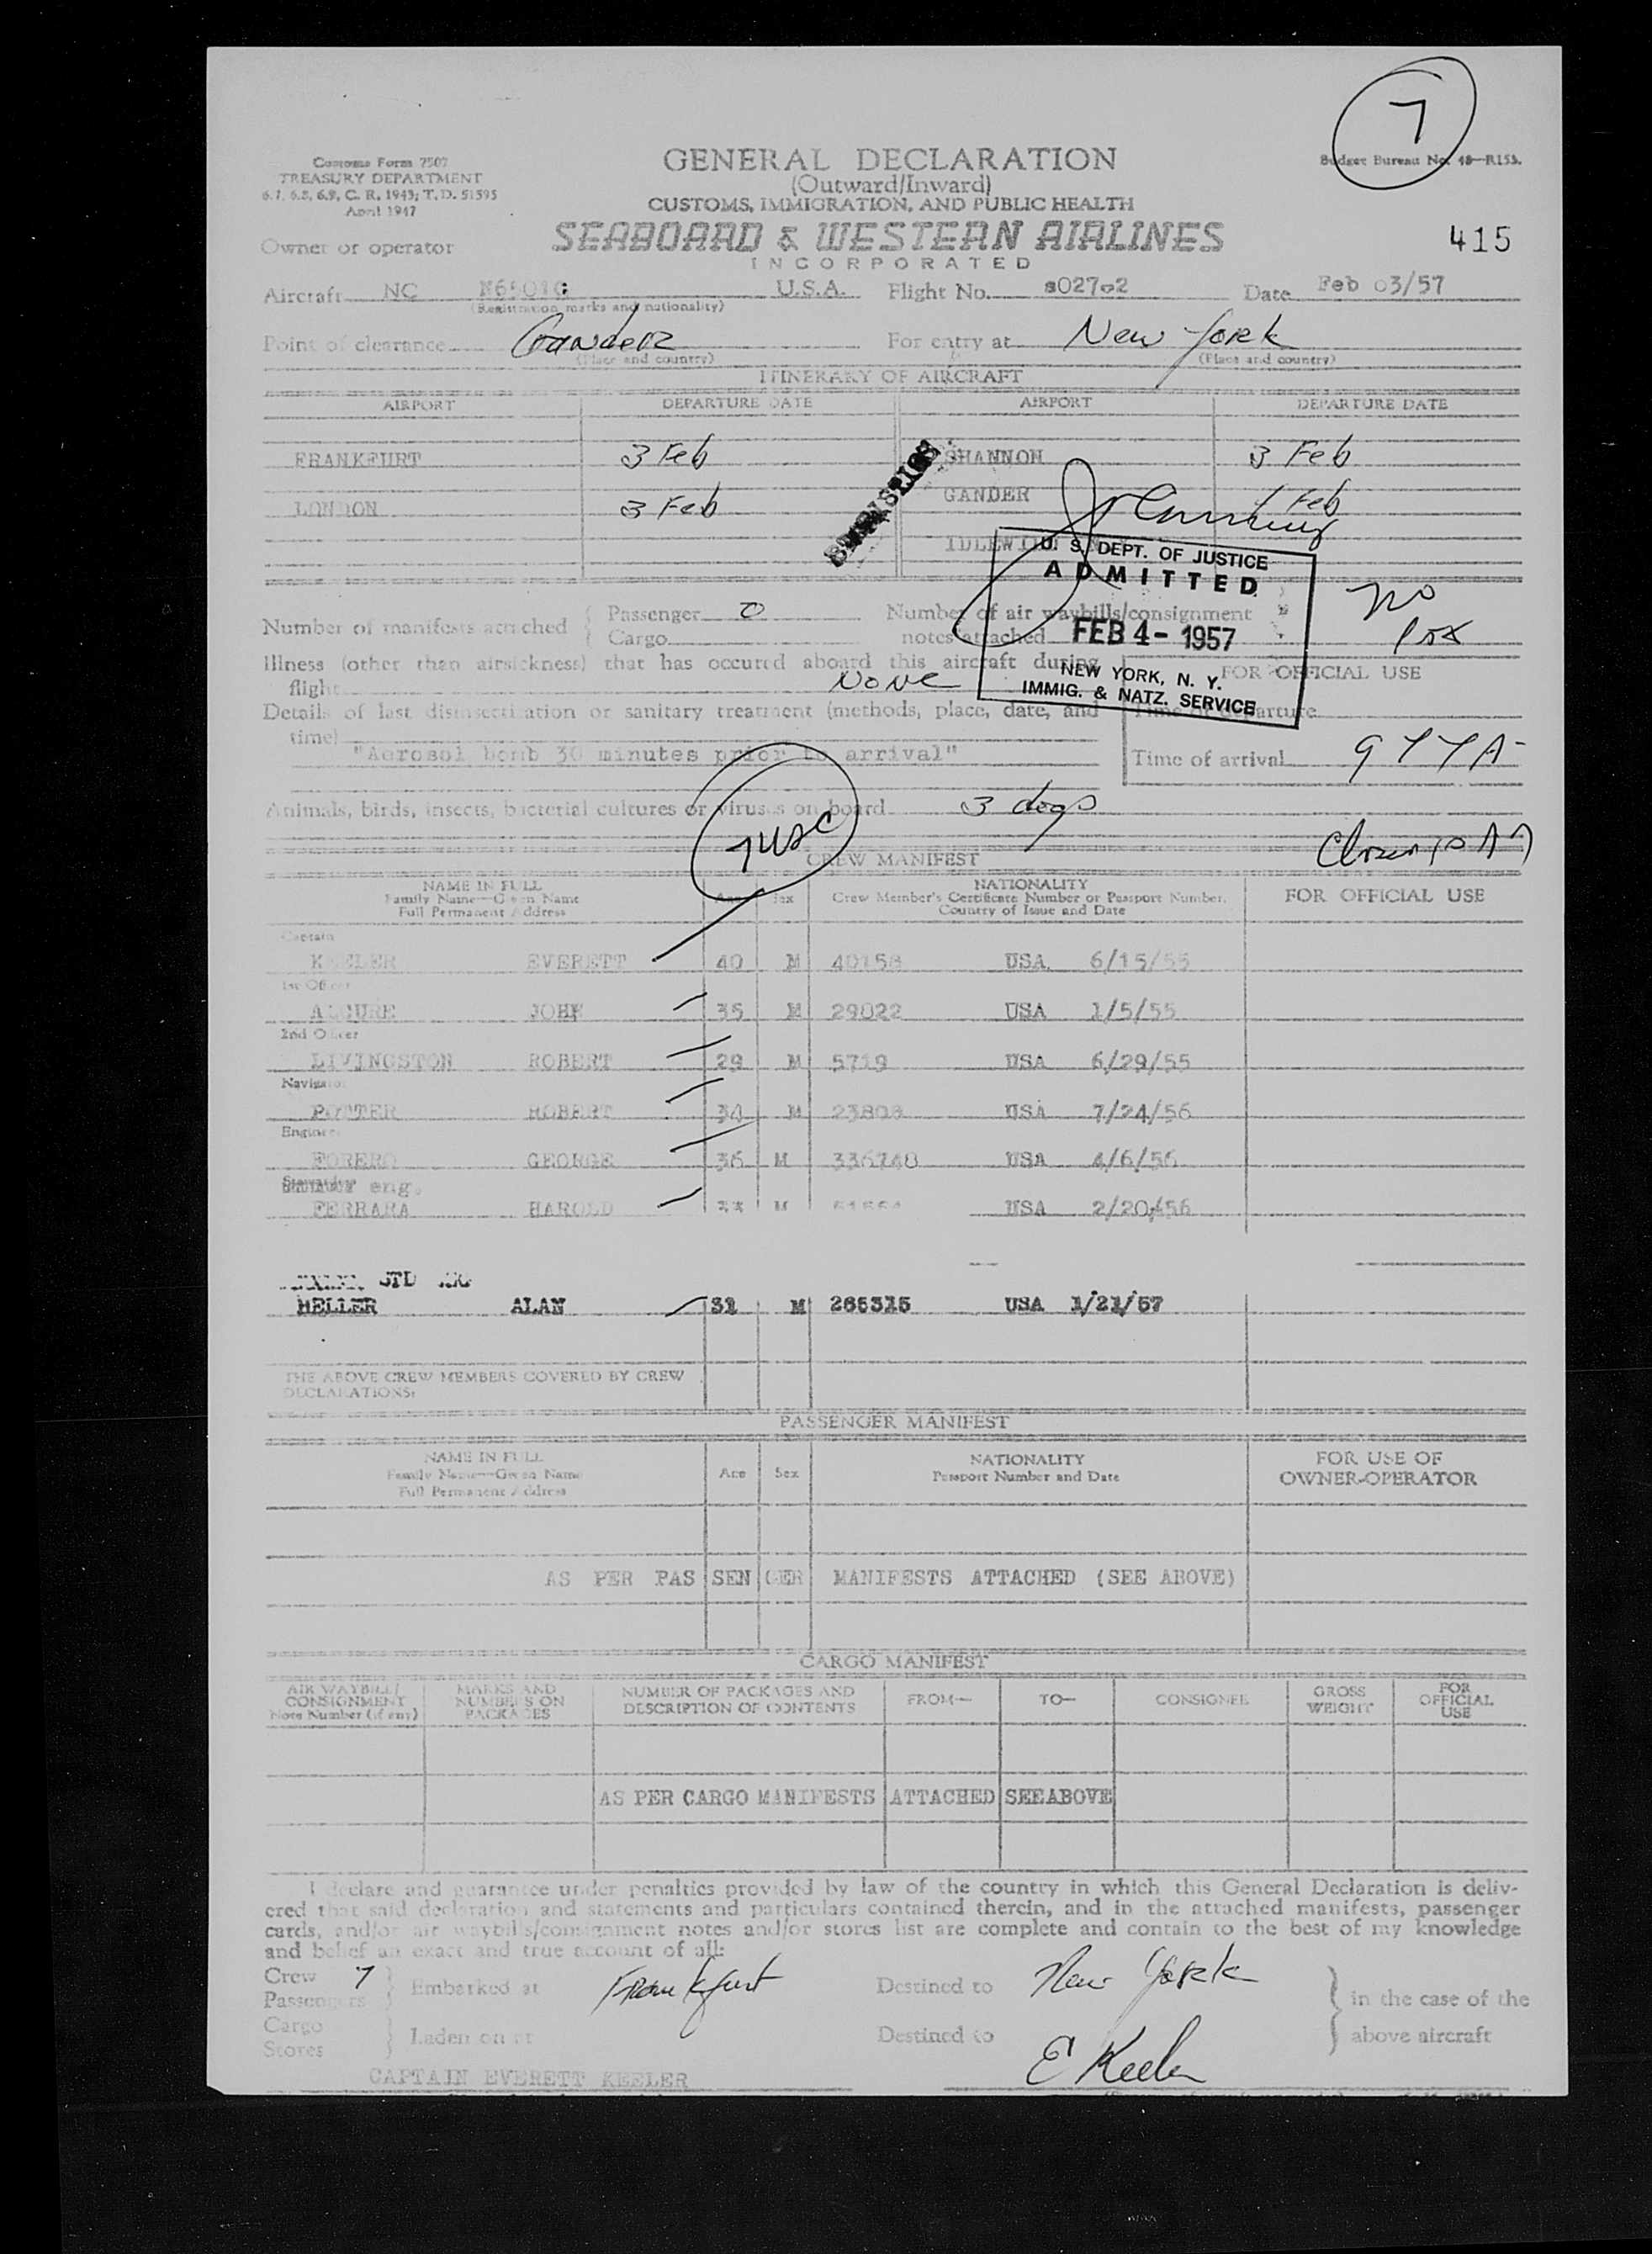 7
Customs Form 7507
TREASURY DEPARTMENT
6.7, 6.8, 6.9, C. R. 1943; T. D. 51595
April 1947
GENERAL DECLARATION
(Outward/Inward)
CUSTOMS, IMMIGRATION, AND PUBLIC HEALTH
Budget Bureau No. 48—R153.
Owner or operator
SEABOARD & WESTERN AIRLINES
INCORPORATED
415
Aircraft NC U.S.A. Flight No. Date Feb 03/57
(Registration marks and nationality)
Point of clearance Gander For entry at New York
(Place and country) (Place and country)
ITINERARY OF AIRCRAFT
AIRPORT DEPARTURE DATE AIRPORT DEPARTURE DATE
FRANKFURT 3 Feb SHANNON 3 Feb
LONDON 3 Feb GANDER Feb
STATISTICS
IDLEWILD
U. S. DEPT. OF JUSTICE
ADMITTED
FEB 4 - 1957
NEW YORK, N. Y.
IMMIG. & NATZ. SERVICE
Number of manifests attached Passenger 0
Cargo
Number of air waybills/consignment
notes attached
no
Illness (other than airsickness) that has occured aboard this aircraft during
flight None
FOR OFFICIAL USE
Details of last disinsectization or sanitary treatment (methods, place, date, and
time)
Time of departure
"Aerosol bomb 30 minutes prior to arrival"
Time of arrival
Animals, birds, insects, bacterial cultures or viruses on board 3 dogs
7 USC
CREW MANIFEST
NAME IN FULL
Family Name—Given Name
Full Permanent Address
Age Sex
NATIONALITY
Crew Member's Certificate Number or Passport Number,
Country of Issue and Date
FOR OFFICIAL USE
Captain
KEELER EVERETT 40 M 40158 USA 6/15/55
1st Officer
ALCURE JOHN 35 M 29022 USA 1/5/55
2nd Officer
LIVINGSTON ROBERT 29 M 5719 USA 6/29/55
Navigator
POTTER ROBERT 34 M USA 7/24/56
Engineer
FORERO GEORGE 36 M 336740 USA 4/6/56
eng.
FERRARA HAROLD M USA 2/20/56
STD
HELLER ALAN 31 M 265315 USA 1/21/57
THE ABOVE CREW MEMBERS COVERED BY CREW
DECLARATIONS:
PASSENGER MANIFEST
NAME IN FULL
Family Name—Given Name
Full Permanent Address
Age Sex
NATIONALITY
Passport Number and Date
FOR USE OF
OWNER-OPERATOR
AS PER PASSENGER MANIFESTS ATTACHED (SEE ABOVE)
CARGO MANIFEST
AIR WAYBILL/
CONSIGNMENT
Note Number (if any)
MARKS AND
NUMBERS ON
PACKAGES
NUMBER OF PACKAGES AND
DESCRIPTION OF CONTENTS
FROM— TO— CONSIGNEE
GROSS
WEIGHT
FOR
OFFICIAL
USE
AS PER CARGO MANIFESTS ATTACHED SEE ABOVE
I declare and guarantee under penalties provided by law of the country in which this General Declaration is deliv-
ered that said declaration and statements and particulars contained therein, and in the attached manifests, passenger
cards, and/or air waybills/consignment notes and/or stores list are complete and contain to the best of my knowledge
and belief an exact and true account of all:
Crew 7
Passengers
Embarked at Frankfurt Destined to New York
in the case of the
Cargo
Stores
Laden on at Destined to
above aircraft
E Keeler
CAPTAIN EVERETT KEELER